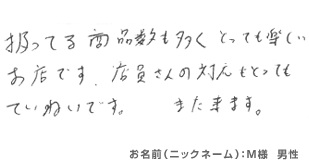 扱ってる商品数も多くとっても楽しい
お店です、店員さんの対応もとっても
ていねいです。 また来ます。
お名前(ニックネーム):M様 男性